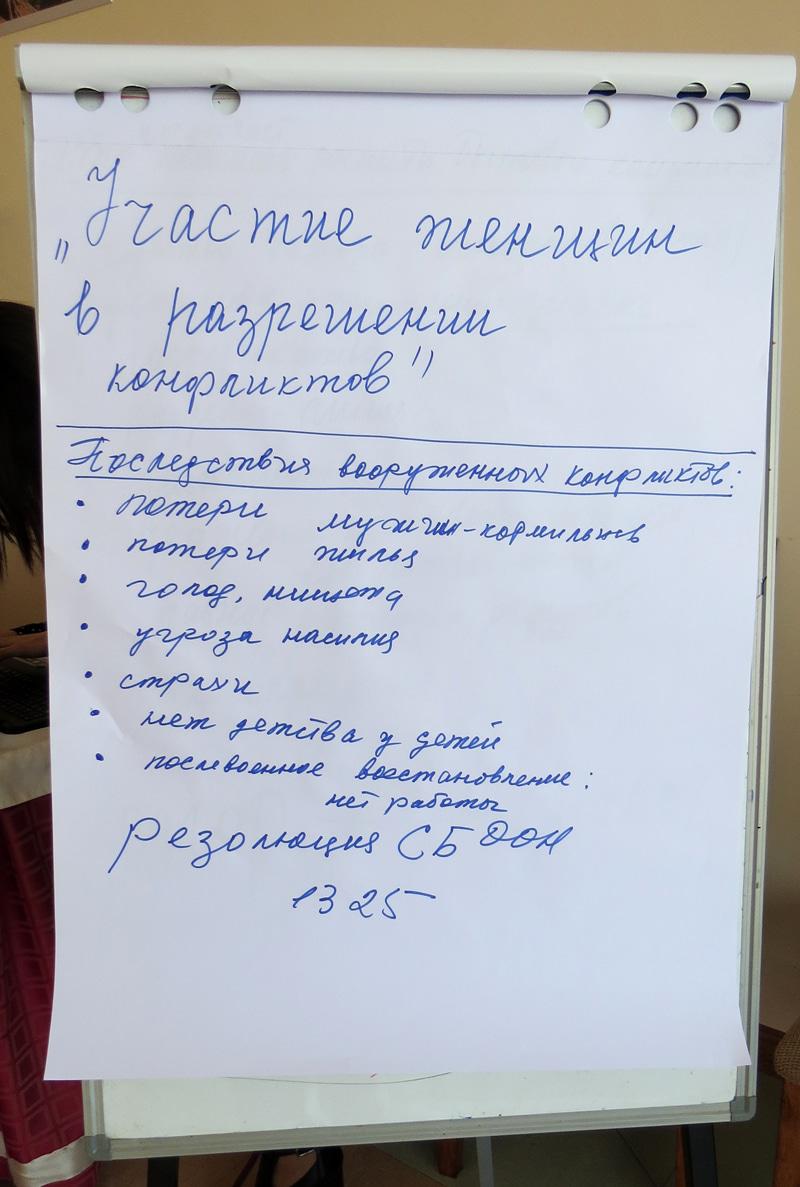 „Участие женщин
в разрешении
конфликтов"
Последствия вооруженных конфликтов:
• потери мужчин-кормильцев
• потери жилья
• голод, нищета
• угроза насилия
• страхи
• нет детства у детей
• послевоенное восстановление:
нет работы
Резолюция СБ ООН
1325